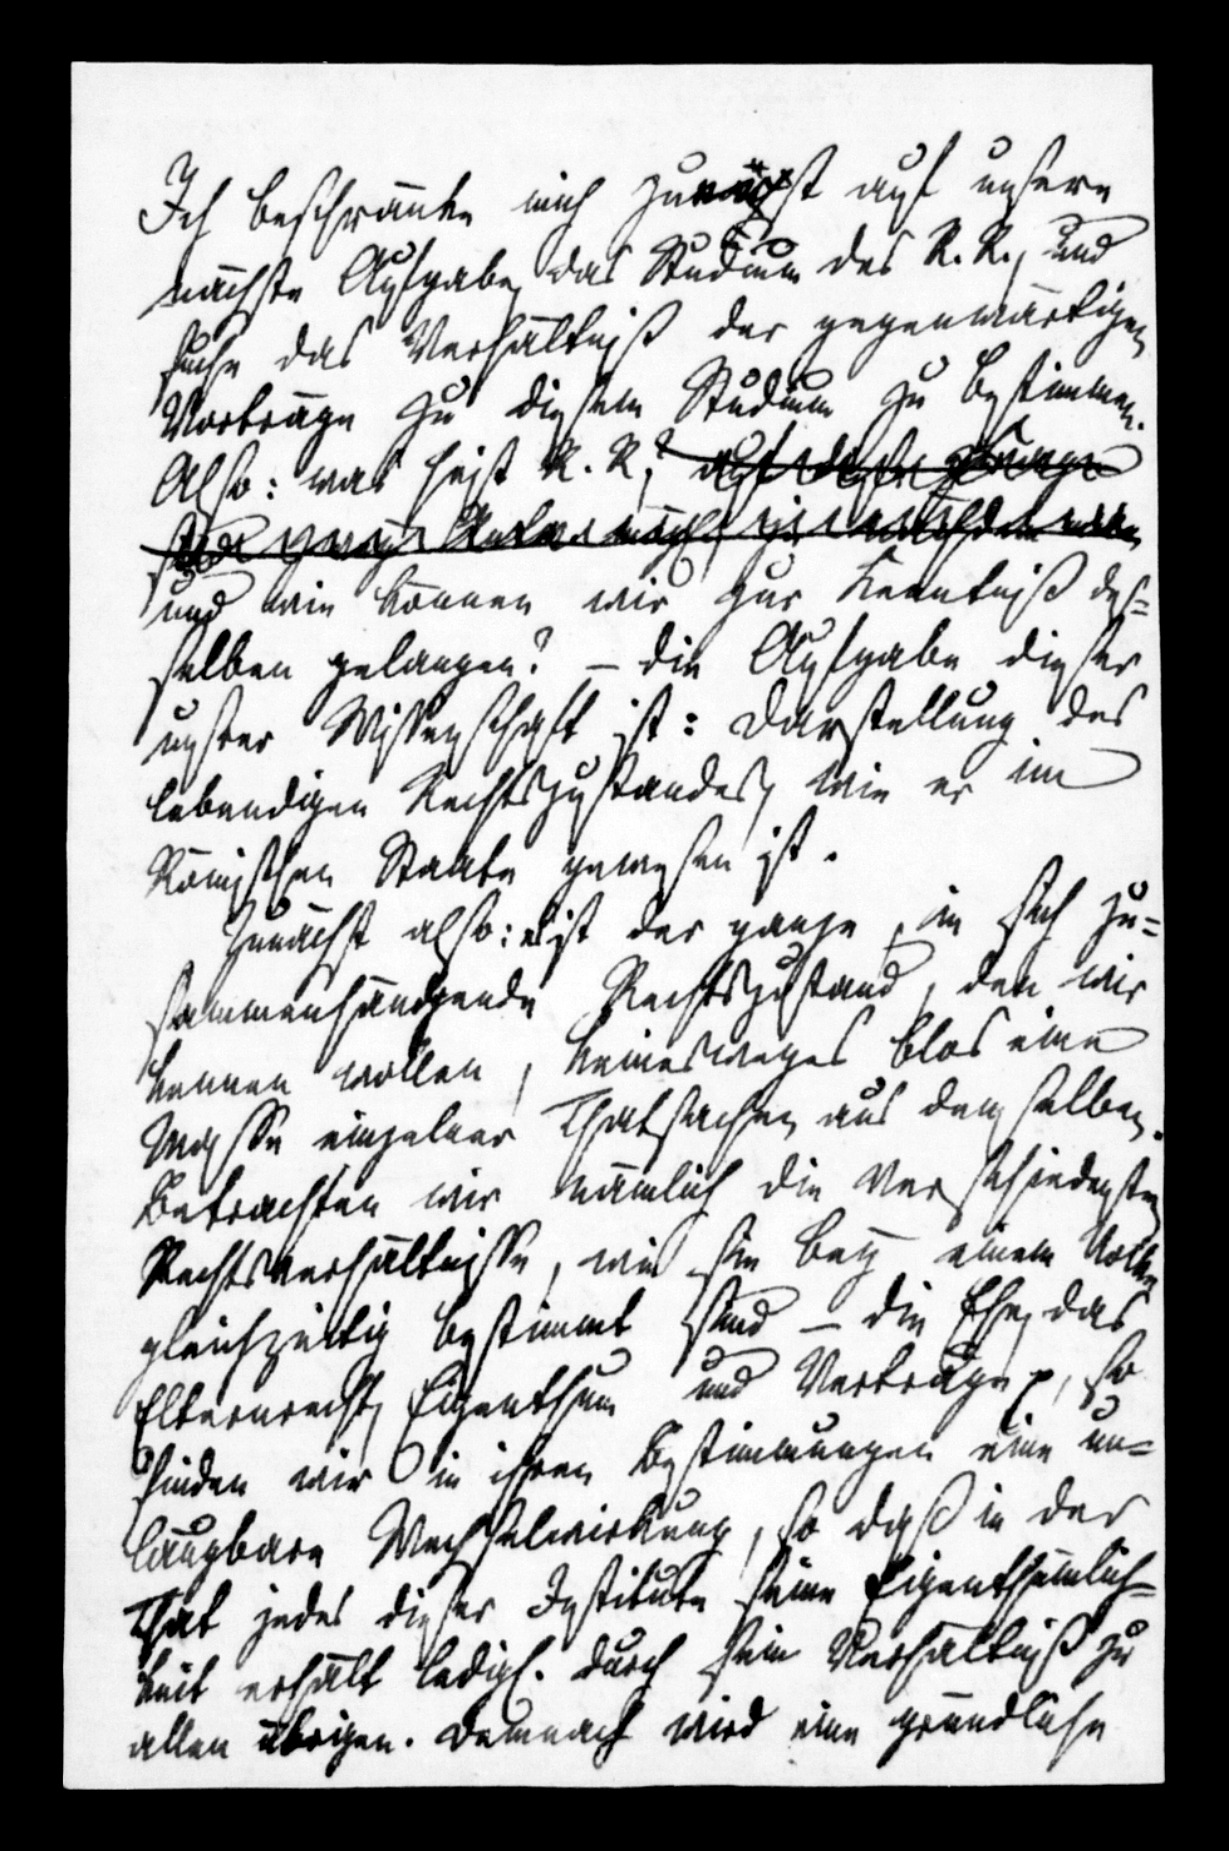 Ich beschränke mich zunächst auf unsere
nächste Aufgabe, das Studium des R. R., und
suche das Verhältniß der gegenwärtigen
Vorträge zu diesem Studium zu bestimmen.
Also: was heist R. R.? auf diese Frage
und wie können wir zur Kenntniß des=
selben gelangen? – die Aufgabe dieser
unsrer Wissenschaft ist: Darstellung des
lebendigen Rechtszustandes, wie er im
Römischen Staate gewesen ist.
Zunächst also: es ist der ganze, in sich zu=
sammenhängende Rechtszustand, den wir
kennen wollen, keinesweges blos eine
Masse einzelner Thatsachen aus demselben.
Betrachten wir nämlich die verschiedensten
Rechtsverhältnisse, wie sie bey einem Volke
gleichzeitig bestimmt sind – die Ehe, das
Elternrecht, Eigenthum und Verträge, so
finden wir in ihren Bestimmungen eine un=
läugbare Wechselwirkung, so daß in der
That jedes dieser Institute seine Eigenthümlich=
keit erhält ledigl. durch sein Verhältniß zu
allen übrigen. Demnach wird eine gründliche